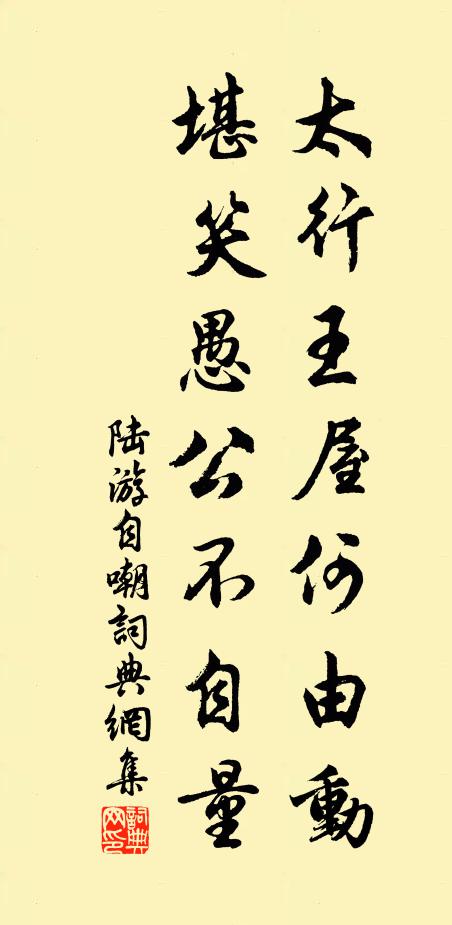 太行王屋何由動
堪笑愚公不自量
陆游自嘲詞典網集
詞典
网印